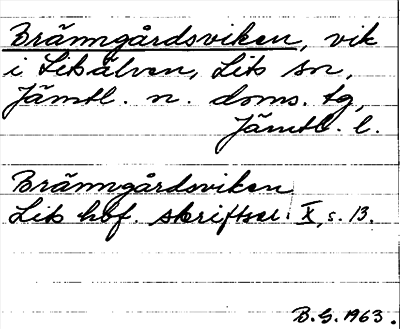 Bränngårdsviken, vik
i Litsälven, Lits sn,
Jämtl. n. doms. tg,
Jämtl. l.
Bränngårdsviken
Lits hbf. skriftser. X, s. 13.
B. G. 1963.